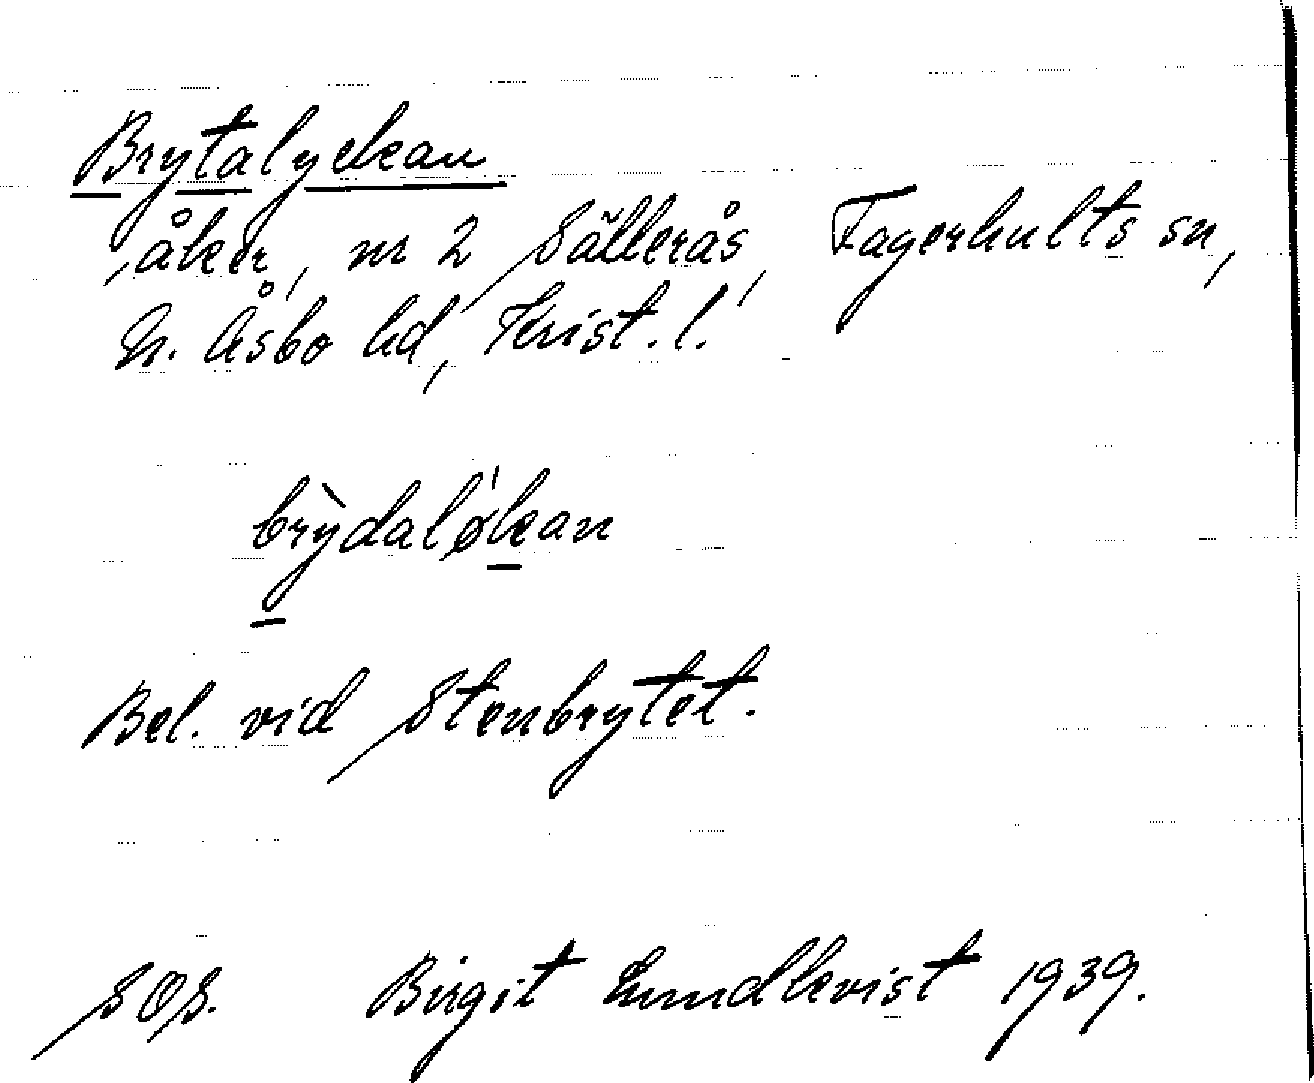 Brytalyckan
åker, nr 2 Sällerås, Fagerhults sn,
N. Åsbo hd, Krist. l.
brỳdaløkan
Bel. vid Stenbrytet.
SOS. Birgit Lundkvist 1939.